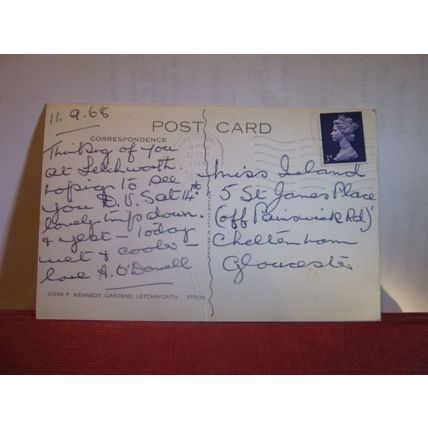 11.9.68
POST CARD
CORRESPONDENCE
Thinking of you
at Letchworth
hoping to see
you D.V. Sat 14th
lovely trip down.
& yest – Today
wet & cooler
love A. O'Donnell
JOHN F. KENNEDY GARDENS, LETCHWORTH
Miss Island
5 St James Place
(off Painswick Rd)
Cheltenham
Gloucester
3D